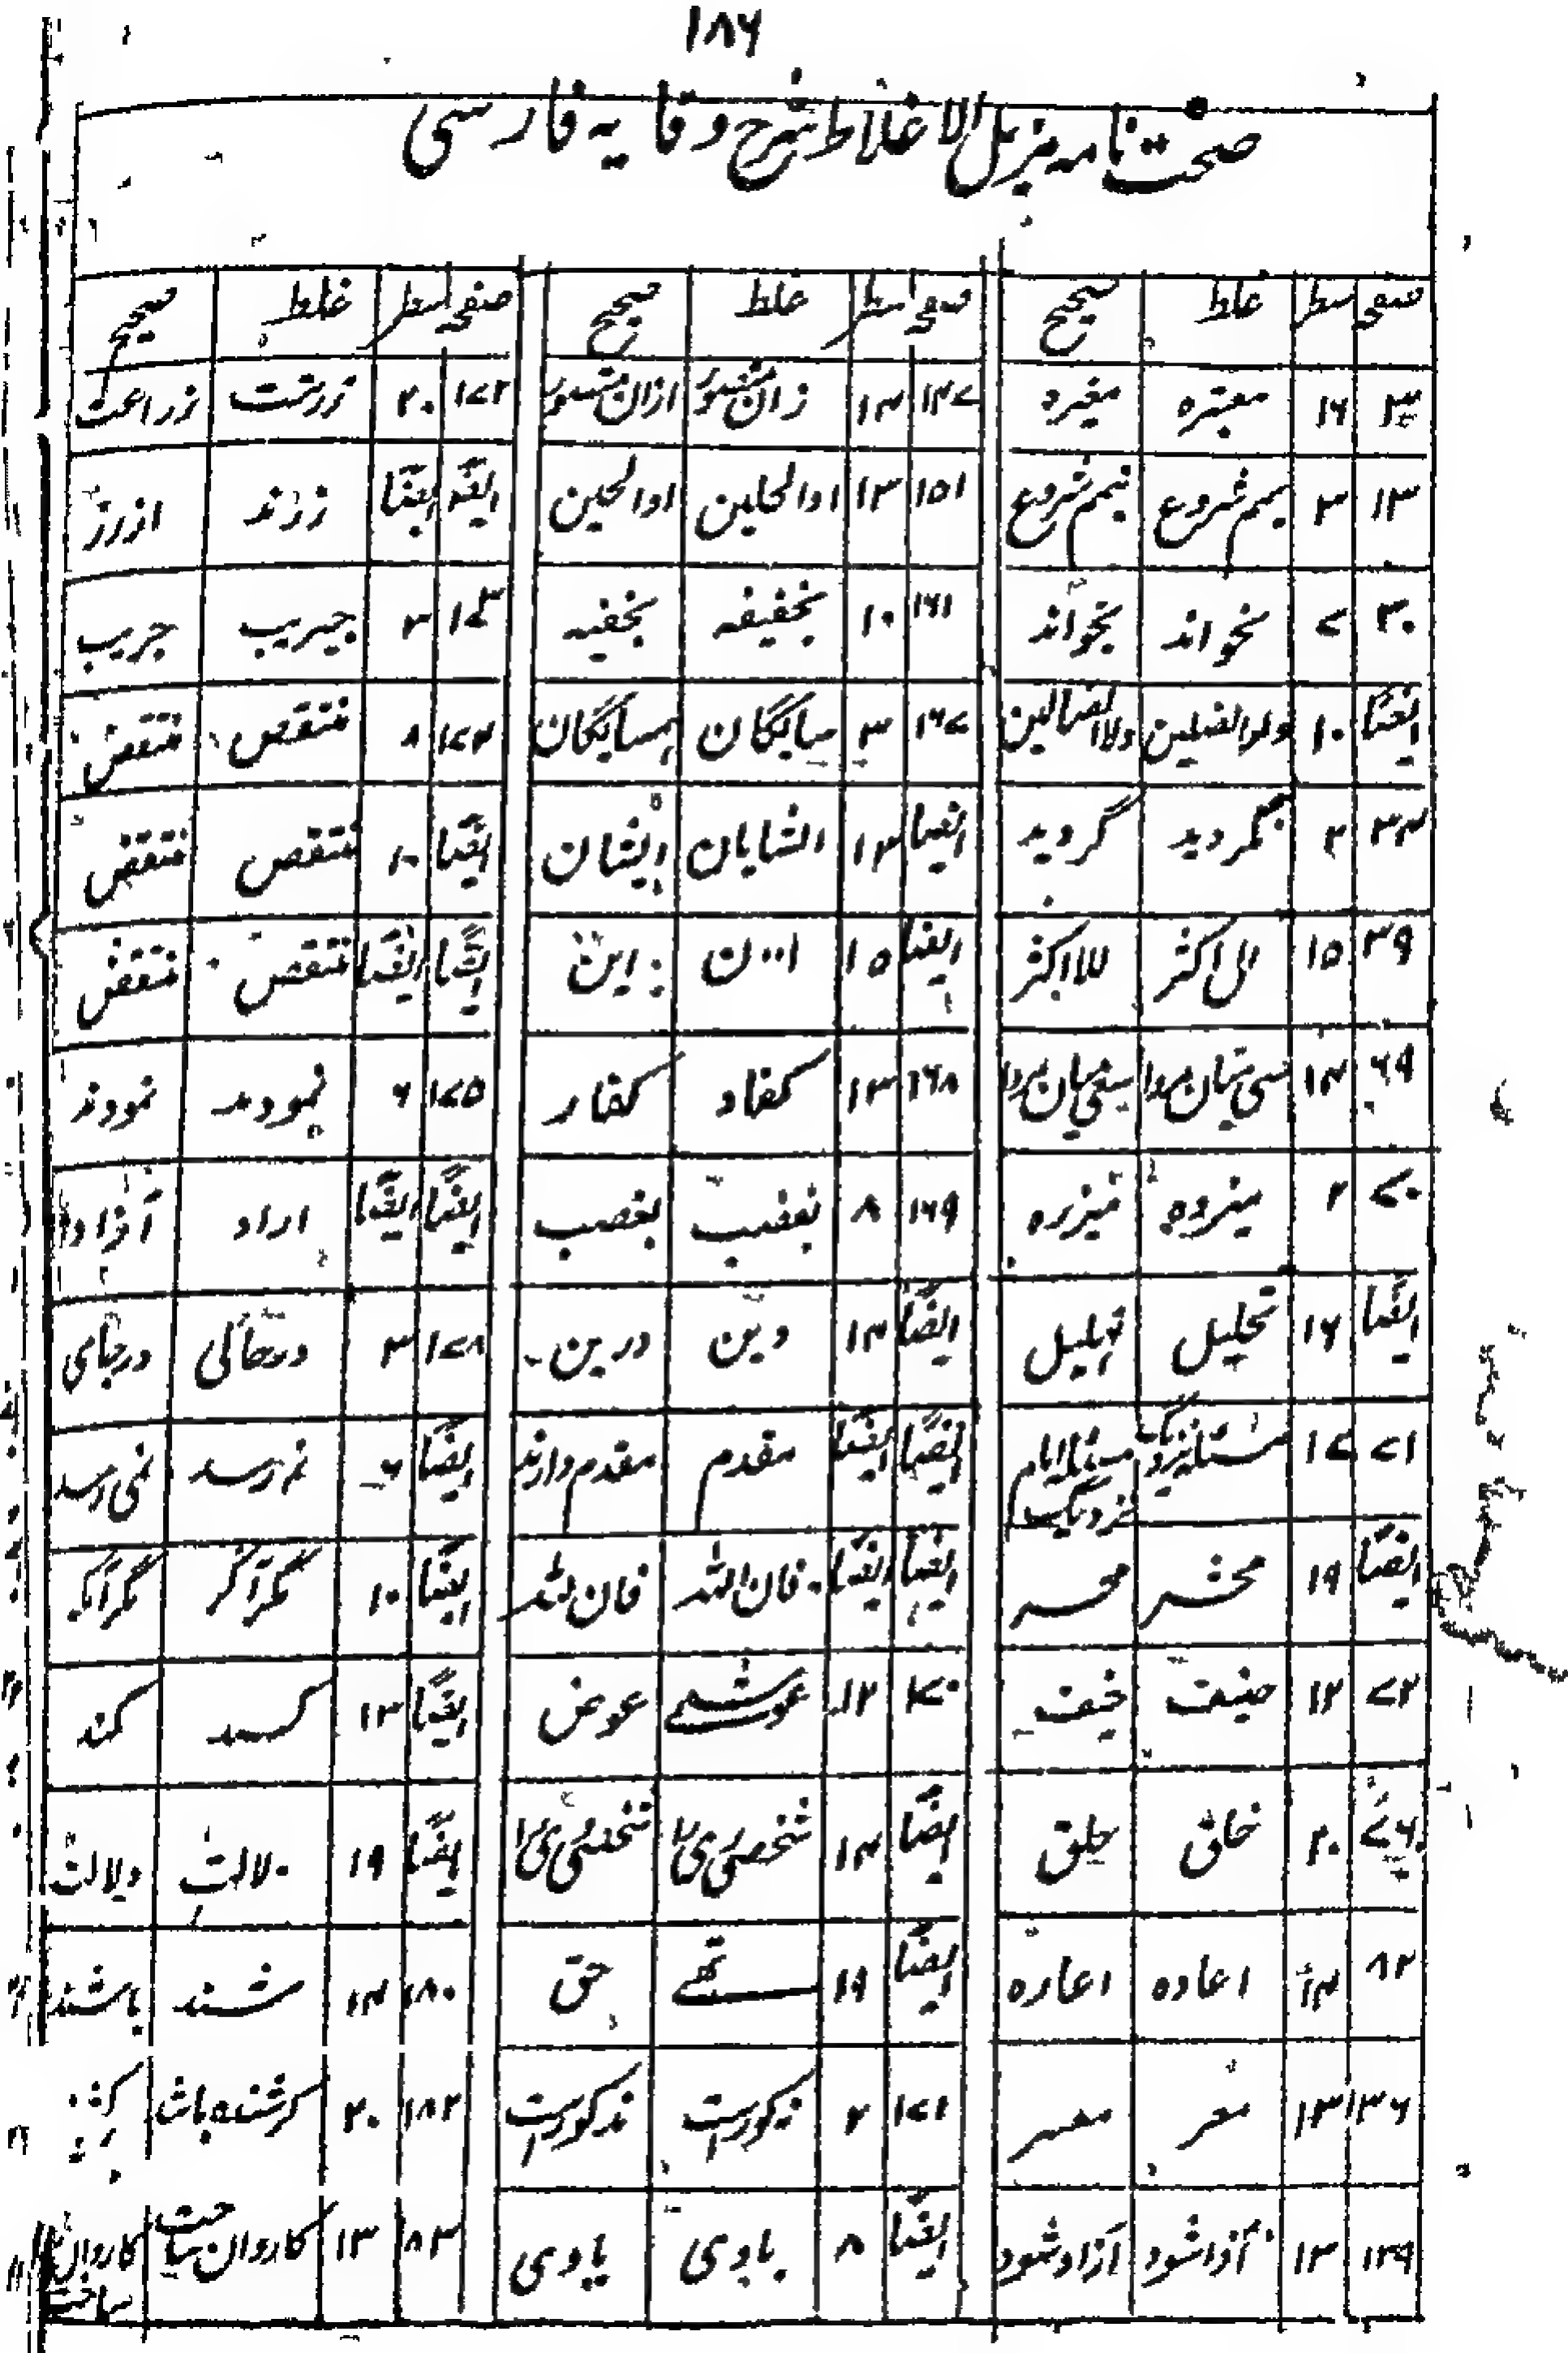 ۱۸۶
صحت نامه مزیل الاغلاط شرح وقایه فارسی
صفحه سطر غلط صحیح صفحه سطر غلط صحیح صفحه سطر غلط صحیح
۳ ۱۶ معتبره مغیره ۱۴۷ ۱۴ زان ازان ۱۷۲ ۲۰ زرعت زراعت
۱۳ ۳ شروع نیم شروع ۱۵۱ ۱۳ ادالحلین ادالحین ایضًا ایضًا زرند ازرز
۳۰ ۷ نخواند بخواند ۱۶۱ ۱۰ بخفیفه بخفیه ۱۷۳ ۳ جیریب جریب
ایضًا ۱۰ ولوالضلین ولاالضالین ۱۶۷ ۳ سایگان همسایگان ۱۷۴ ۸ منتقص منتقض
۳۴ ۲ بگردید گردید ایضًا ۱۲ الشایان ایشان ایضًا ۱۰ منتقص منتقض
۳۹ ۱۵ ال اکثر للاکثر ایضًا ۱۵ این ایضًا ایضًا منتقص منتقض
۶۹ ۱۴ سعی میان ۱۶۸ ۱۳ کفاد کفار ۱۷۵ ۶ نمودند
۷۰ ۲ ۱۶۹ ۸ بغضب بغصب ایضًا ایضًا اراد آزاد
ایضًا ۱۶ تحلیل تهلیل ایضًا ۱۴ دین درین ۱۷۸ ۳ درحالی درجای
۷۱ ۱۷ مسئله ایام نزدیک ایضًا ایضًا مقدم مقدم دارند ایضًا ۶ نه رسد نمی رسد
ایضًا ۱۹ محشر محسر ایضًا ایضًا فان الله فان لله ایضًا ۱۰ مگر آگر مگر آنکه
۷۲ ۱۲ حنیفت خیفت ۱۷۰ ۱۲ عوض ایضًا ۱۳ کسند کند
۷۶ ۲۰ خلق حلق ایضًا ۱۴ شخصی شخصی ایضًا ۱۹ دلالت
۸۲ ۱۴ اعاده اعاره ایضًا ۱۹ حق ۱۸۰ ۱۴ شند باشند
۱۳۶ ۱۳ معر معسر ۱۷۱ ۲ مذکورست ۱۸۲ ۲۰
۱۳۹ ۱۳ آذاشود آزاد شود ایضًا ۸ بادی یا وی ۱۸۳ ۱۳ کاروان کاروان ساخت